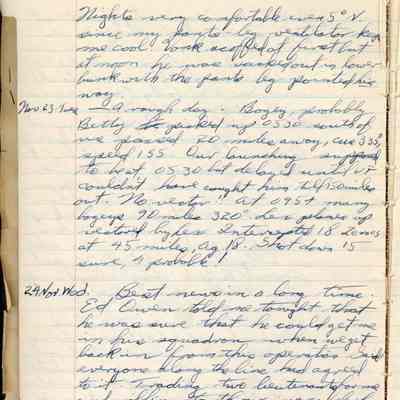 Nights very comfortable even 5° N.
since my pants-leg ventilator keeps
me cool. York scoffed at first but
at noon he was sacked out in lower
bunk with the pants leg pointed his
way.
Nov. 23. Tues — A rough day. Bogey probably
Betty picked up 0530 south of
us passed 20 miles away, cus 335,
speed 155 Our launching
to be at 05:30 but delayed until
couldn't have caught him till 150 miles
out. "No vector". At 0954 many
bogeys 90 miles 320°. Lex planes up
vectored by Lex Intercepts 18
at 45 miles, ag. 18. Shot down 15
sure, 4 probable!
24 Nov. Wed. Best news in a long time.
Ed Owen told me tonight that
he was sure that he could get me
in his squadron when we get
back in from this operation Said
everyone along the line had agreed
to it. Trading two lieutenants for me